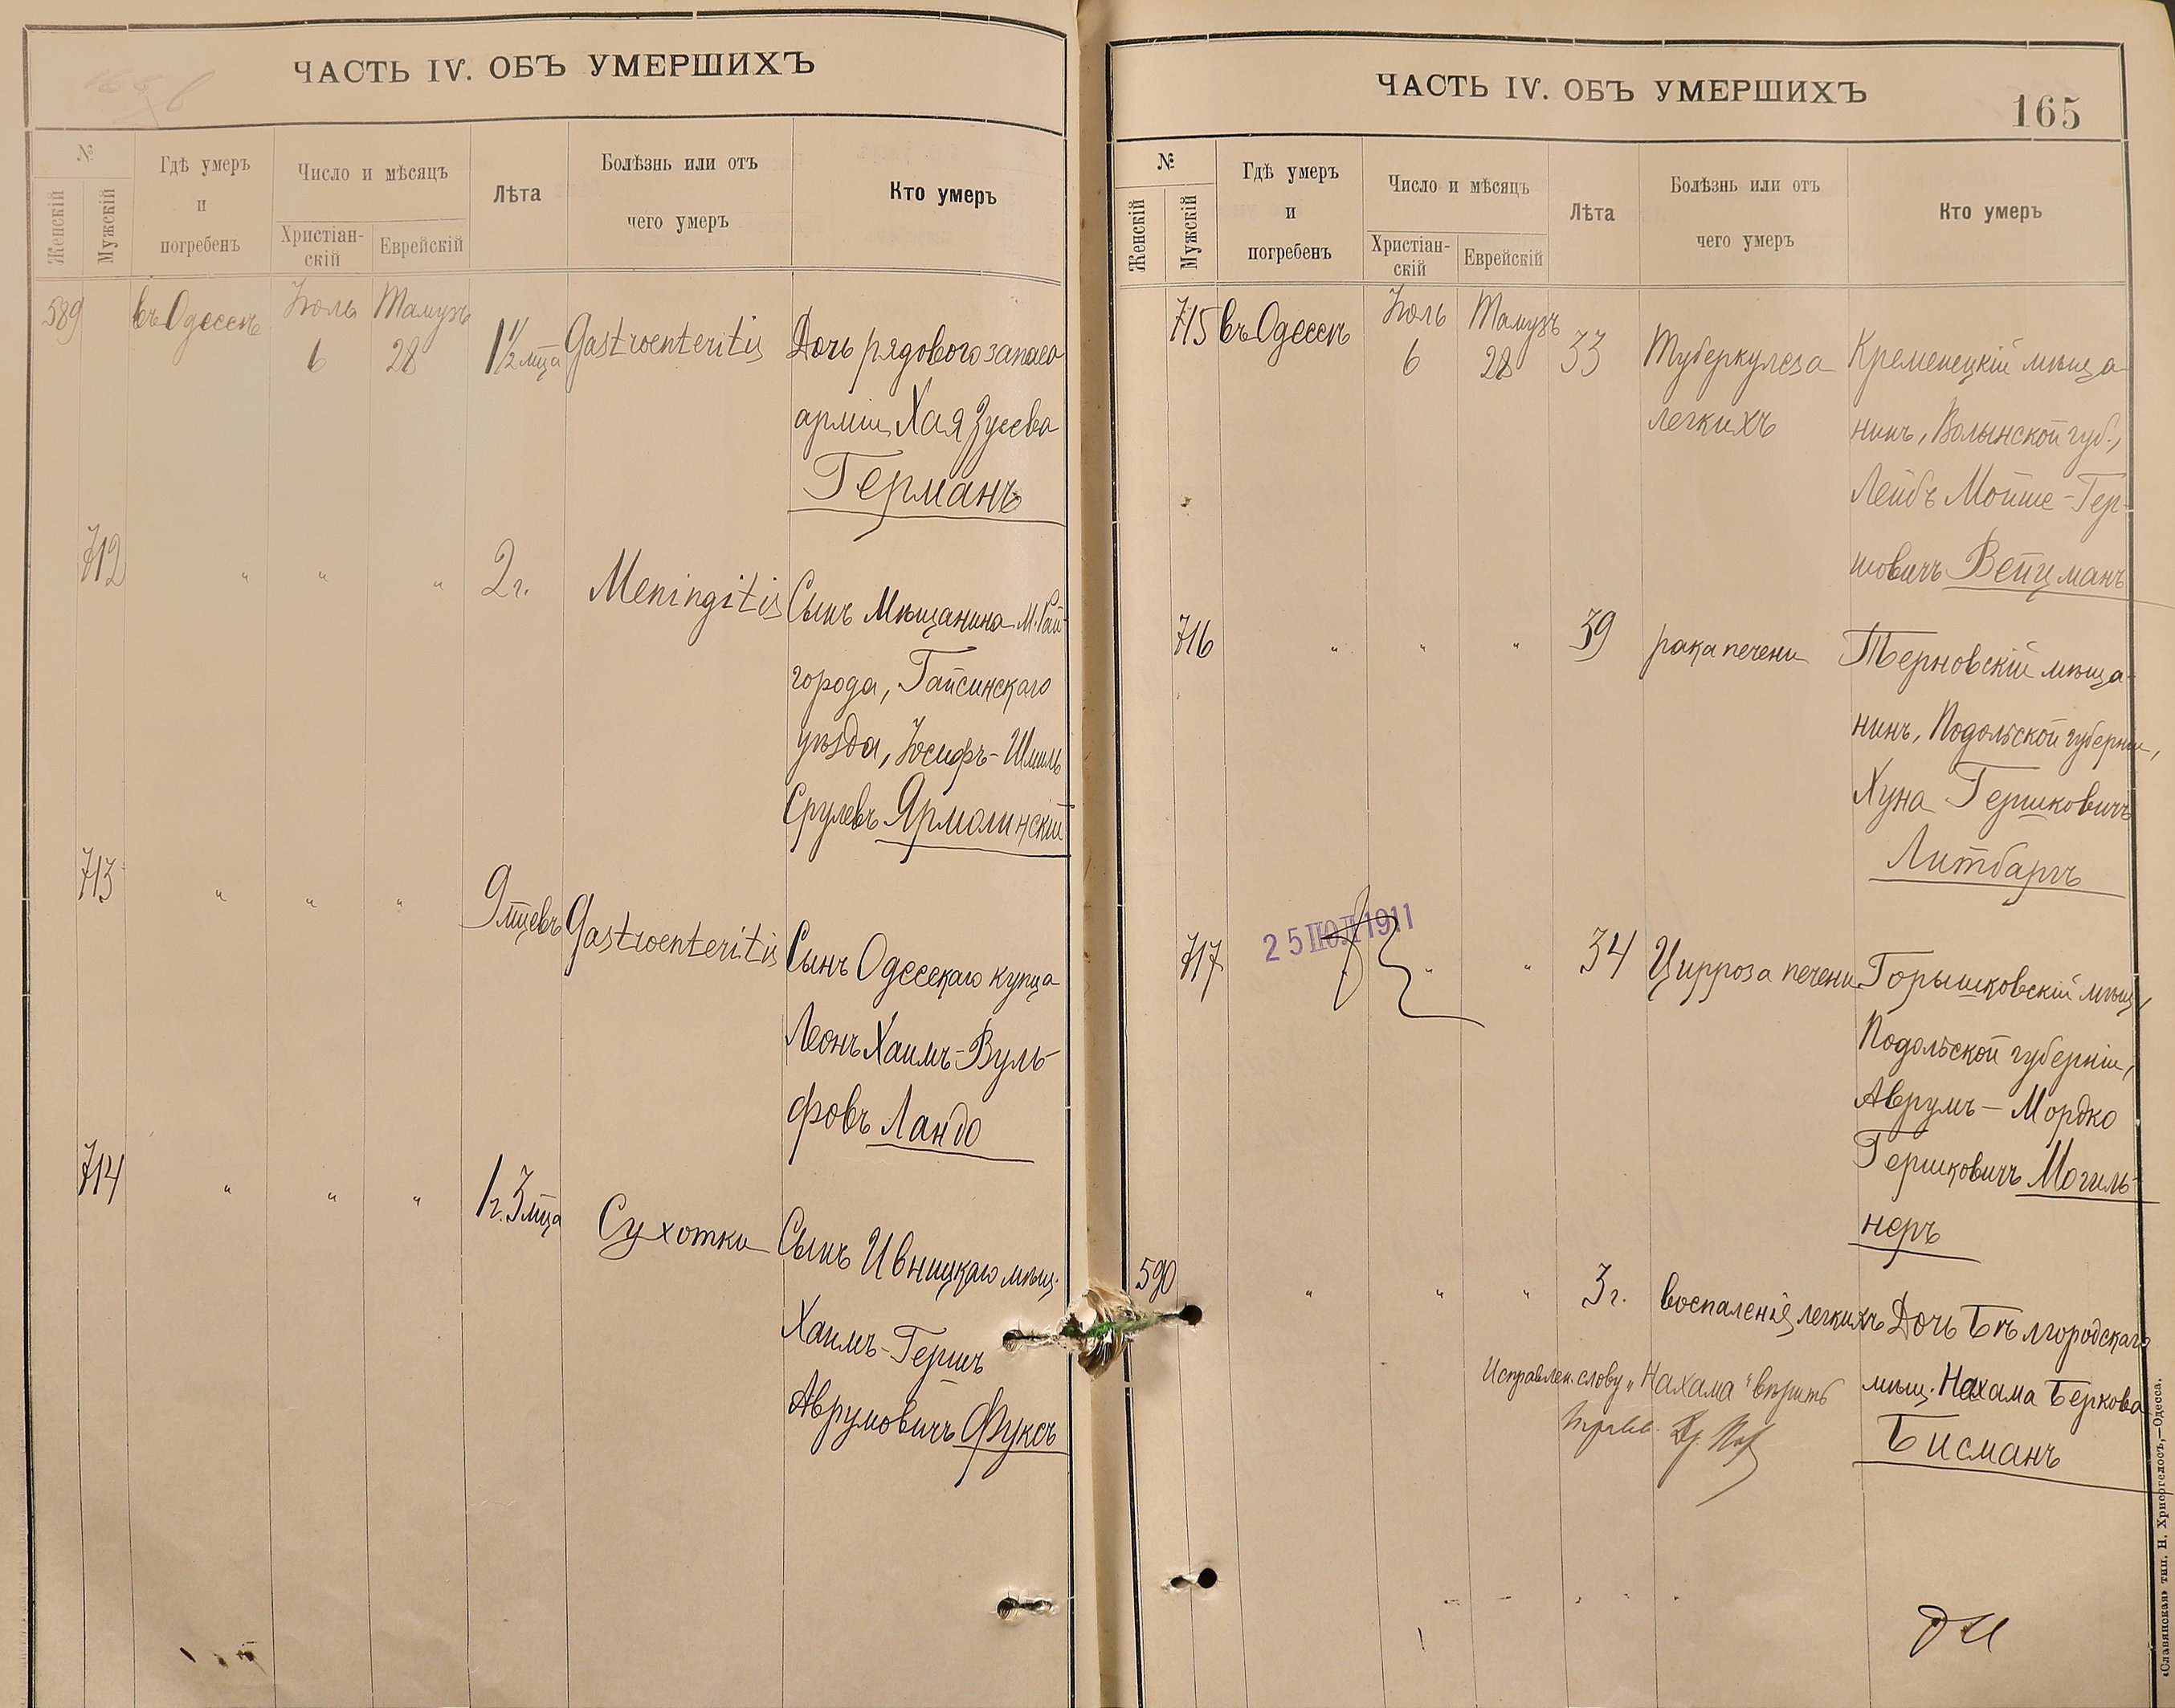 ЧАСТЬ IV. ОБЪ УМЕРШИХЪ
№
Женскій
Мужскій
Гдѣ умеръ
и
погребенъ
Число и мѣсяцъ
Христіан-
скій
Еврейскій
Лѣта
Болѣзнь или отъ
чего умеръ
Кто умеръ
589
въ Одессѣ
Іюль
6
Тамузъ
28
1 1/2 мца
Gastroenteritis
Дочь рядового запаса
арміи, Хая Зусева
Германъ
712
" " "
2 г.
Meningitis
Сынъ Мѣщанина м. Рай-
города, Гайсинскаго
уѣзда, Іосифъ-Шмиль
Срулевъ Ярмолинскій
713
" " "
9 мцевъ
Gastroenteritis
Сынъ Одесскаго купца
Леонъ Хаимъ-Вуль-
фовъ Ландо
714
" " "
1 г. 3 мца
Сухотки
Сынъ Ивницкаго мѣщ.
Хаимъ-Гершъ
Аврумовичъ Фуксъ
ЧАСТЬ IV. ОБЪ УМЕРШИХЪ
165
№
Женскій
Мужскій
Гдѣ умеръ
и
погребенъ
Число и мѣсяцъ
Христіан-
скій
Еврейскій
Лѣта
Болѣзнь или отъ
чего умеръ
Кто умеръ
715
въ Одессѣ
Іюль
6
Тамузъ
28
33
Туберкулеза
легкихъ
Кременецкій мѣща-
нинъ, Волынской губ.,
Лейбъ Мойше-Гер-
шовичъ Вейцманъ
716
" " "
39
рака печени
Терновскій мѣща-
нинъ, Подольской губерніи,
Хуна Гершковичъ
Литбаргъ
717
25 ІЮЛ 1911
" "
34
Цирроза печени
Горышковскій мѣщ.,
Подольской губерніи,
Аврумъ-Мордко
Гершковичъ Могиль-
неръ
590
" " "
3 г.
воспаленія легкихъ
Дочь Бѣлгородскаго
мѣщ. Нахама Беркова
Бисманъ
Исправлен. слову „Нахама" вѣрить
«Славянская» тип. Н. Хрисогелосъ,—Одесса.